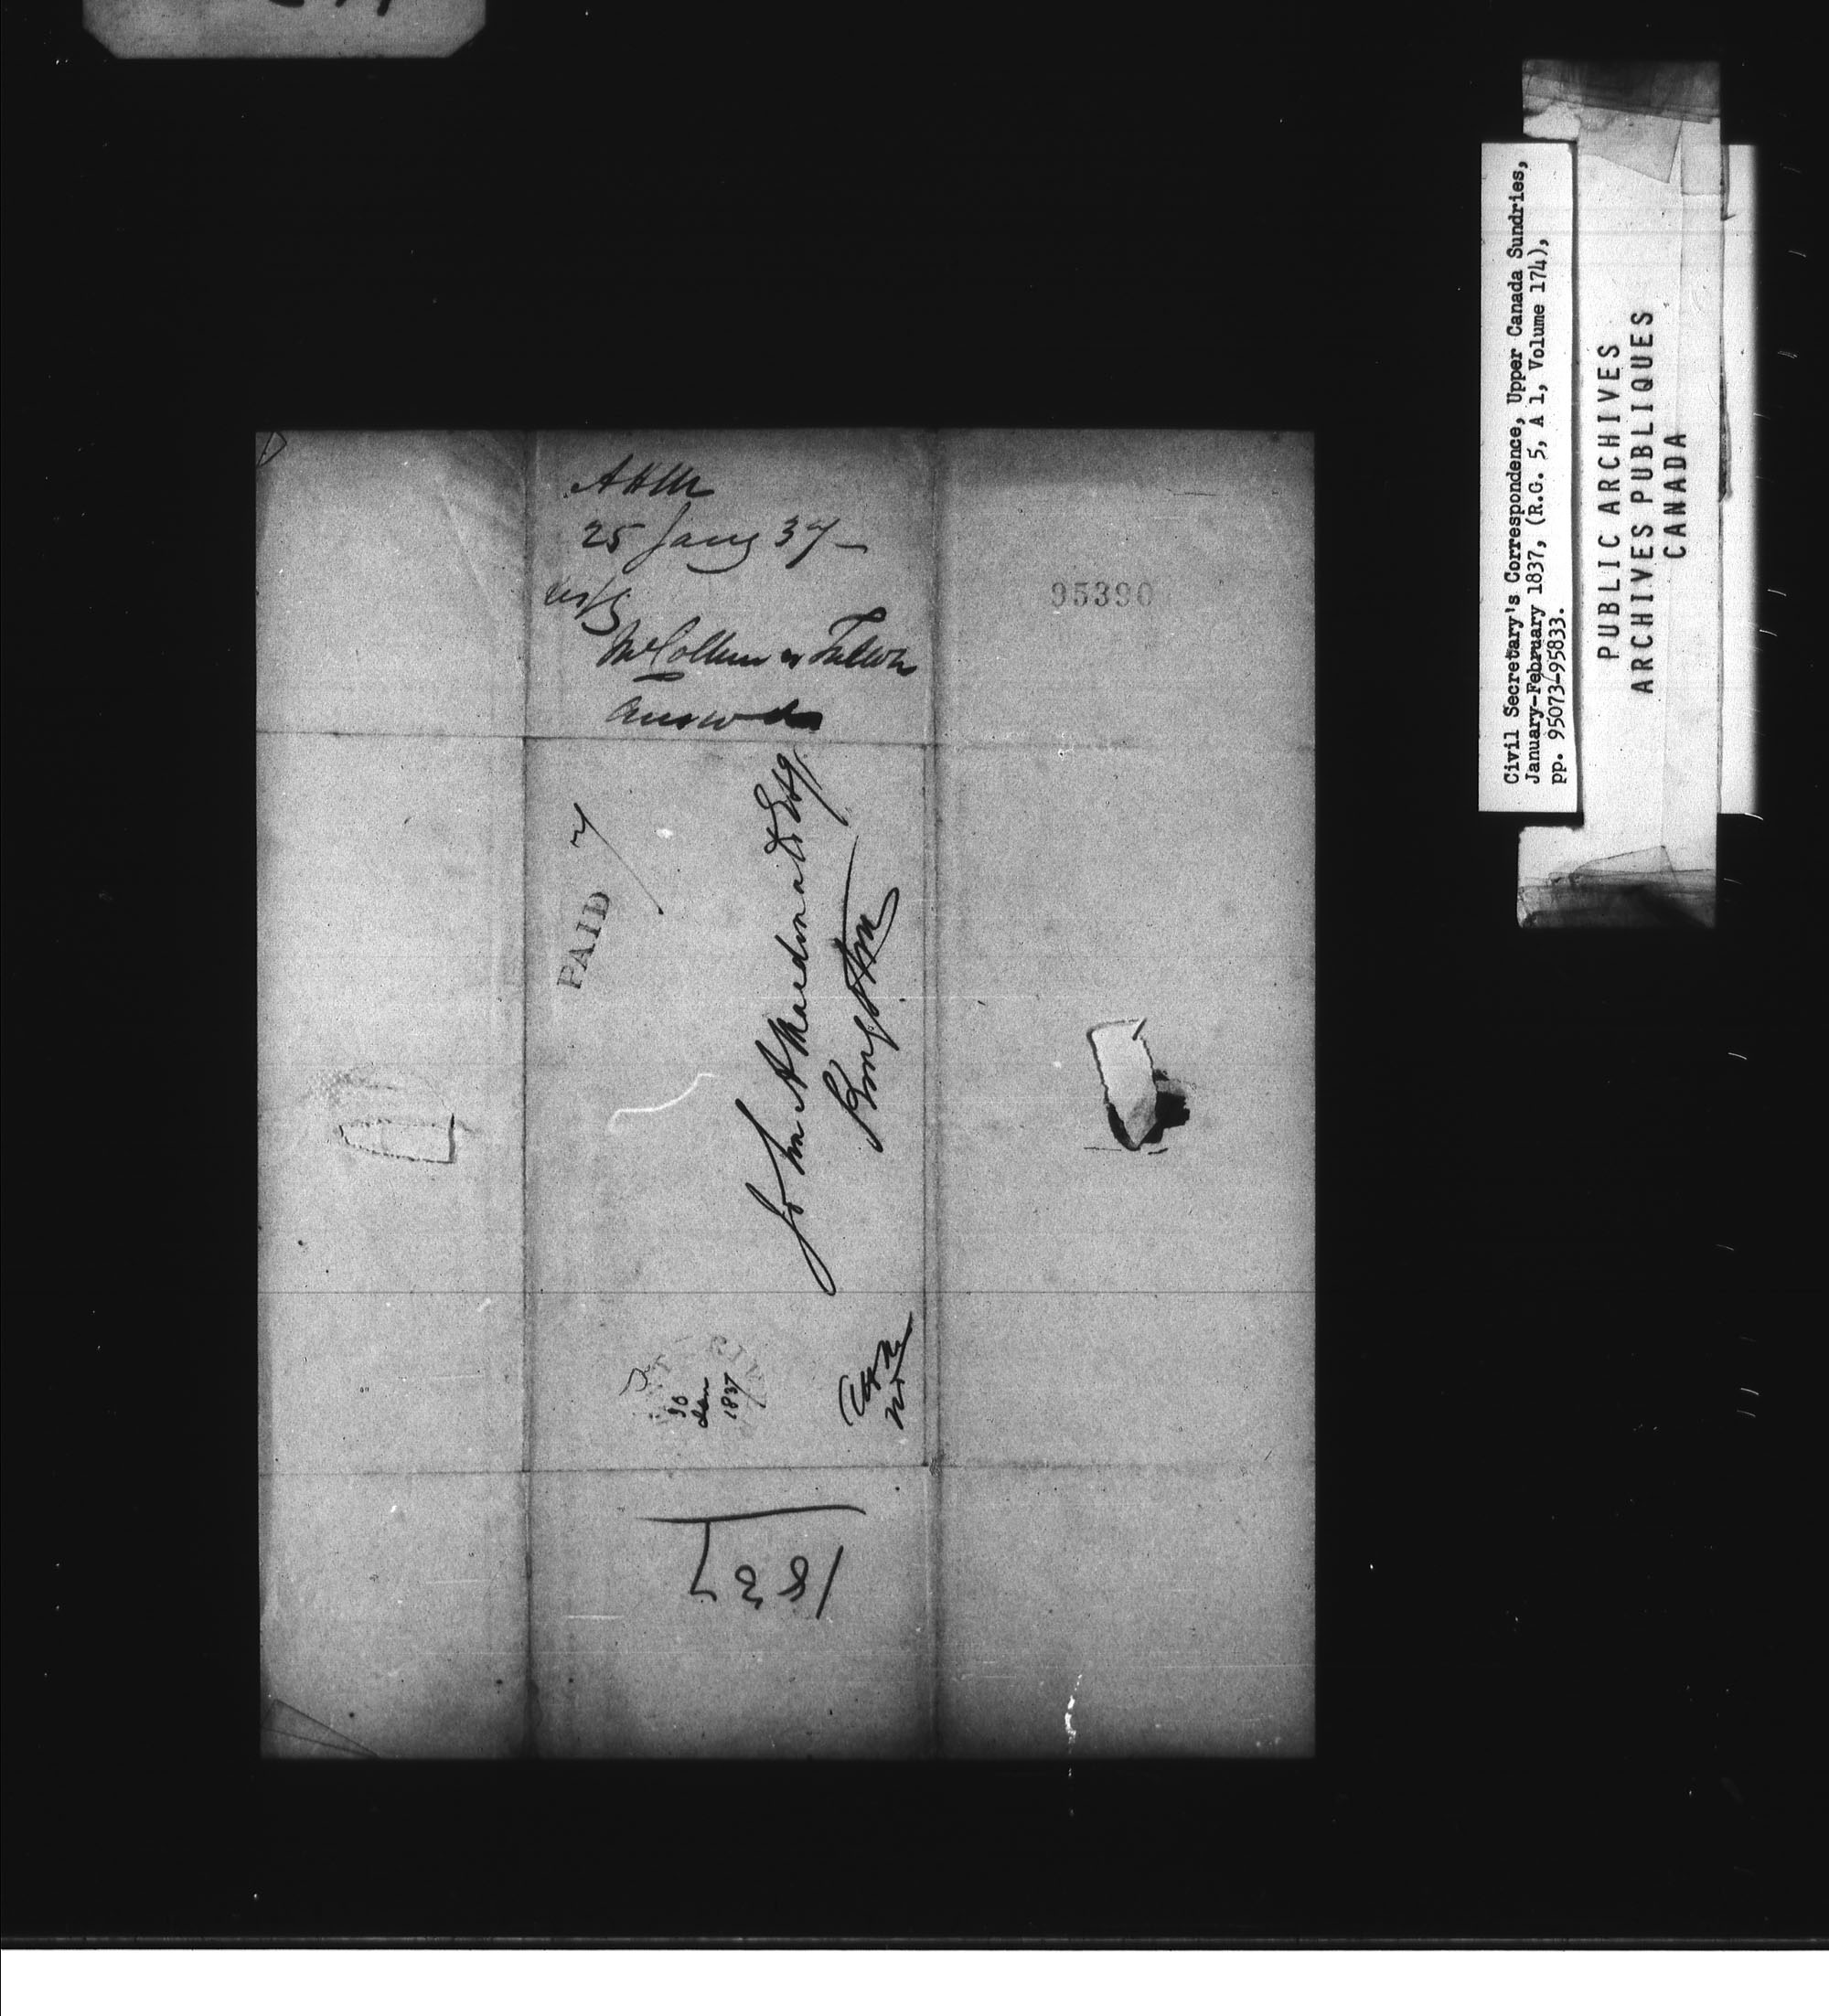 AHM
25 Jany 37 –
McCollum vs
Answd
95390
PAID 7
John A Macdonald Esq
Kingston
30
Jan
1837
1837
Civil Secretary's Correspondence, Upper Canada Sundries,
January-February 1837, (R.G. 5, A 1, Volume 174),
pp. 95073-95833.
PUBLIC ARCHIVES
ARCHIVES PUBLIQUES
CANADA